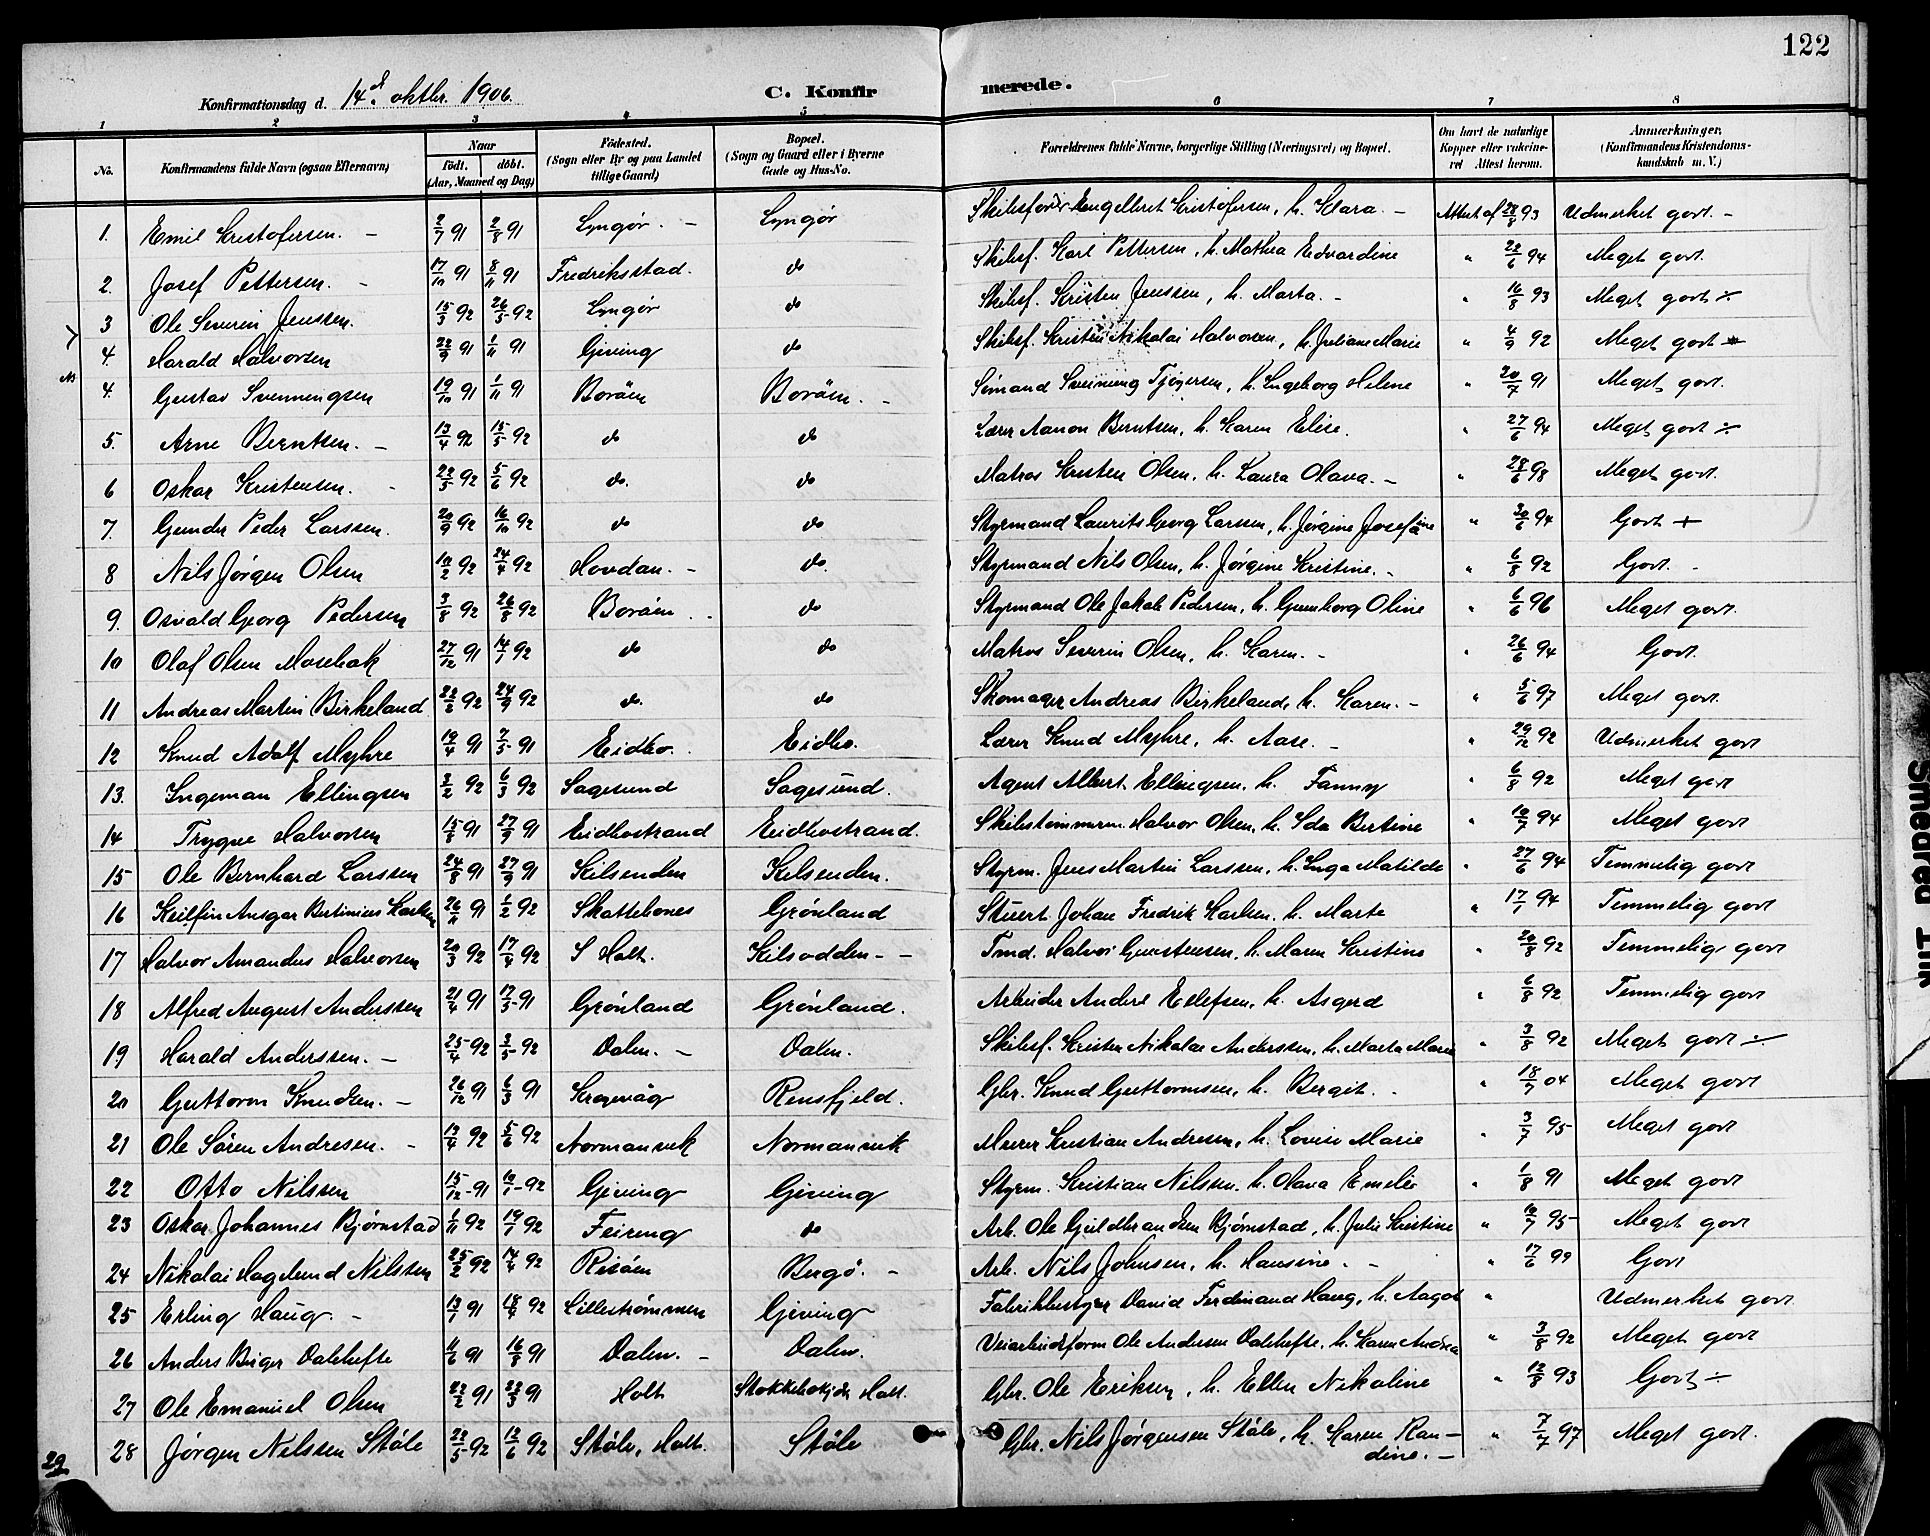 122
Konfirmationsdag d. 14de oktbr. 1906.
C. Konfirmerede.
1 2 3 4 5 6 7 8
No. Konfirmandens fulde Navn (ogsaa Efternavn) Naar født. døbt. (Aar, Maaned og Dag) Fødested. (Sogn eller By og paa Landet tillige Gaard) Bopæl. (Sogn og Gaard eller i Byerne Gade og Hus-No. Forældrenes fulde Navne, borgerlige Stilling (Næringsvei) og Bopæl. Om havt de naturlige Kopper eller vakcineret Attest herom. Anmærkninger. (Konfirmandens Kristendomskundskab m. V.)
1. Emil Kristofersen. - 2/7 91 2/8 91 Lyngør. - Lyngør Skibsfører Engelbret Kristofersen, h. Klara. - Attest af 22/8 93 Udmerket godt. -
2. Josef Pettersen. - 17/10 91 8/11 91 Fredriksstad. do Skibsf. Karl Pettersen, h. Mathea Edvardine " 22/6 94 Meget godt.
3 Ole Severin Jenssen. 15/3 92 26/5 92 Lyngør do Skibsf. Kristen Jenssen, h. Marta. - " 16/8 93 Meget godt ÷
4. Harald Halvorsen 22/9 91 1/11 91 Giving do Skibsf. Kristen Nikolai Halvorsen, h. Juliane Marie " 4/9 92 Meget godt
4. Gustav Svenningsen 19/10 91 1/11 91 Borøen Borøen. - Sømand Svenning Tjøgersen, h. Ingeborg Helene " 20/7 91 Meget godt.
5. Arne Berntsen. - 13/4 92 15/5 92 do do Lærer Aanon Berntsen, h. Karen Elise. " 27/6 94 Meget godt ÷
6 Oskar Kristensen. - 22/5 92 5/6 92 do. do Matros Kristen Olsen, h. Laura Olava. - " 28/6 98 Meget godt.
7. Gunder Peder Larssen. 20/9 92 16/10 92 do do Styrmand Laurits Georg Larssen, h. Jørgine Josefine " 30/6 94 Godt +
8 Nils Jørgen Olsen 10/2 92 24/4 92 Hovdan. - do. Styrmand Nils Olsen, h. Jørgine Kristine. - " 6/8 92 Godt. -
9. Osvald Georg Pedersen 3/8 92 26/8 92 Borøen do Styrmand Ole Jakob Pedersen, h. Gunborg Oline " 6/6 96 Meget godt.
10 Olaf Olsen Mosebak 27/12 91 14/1 92 do do Matros Severin Olsen, h. Karen. - " 26/6 94 Godt.
11 Andreas Martin Birkeland 22/6 92 24/9 92 do. do Skomager Andreas Birkeland, h. Karen. - " 5/6 97 Meget godt.
12 Knud Adolf Myhre 19/4 91 7/5 91 Eidbo. Eidbo. Lærer Knud Myhre, h. Aase. - " 29/12 92 Udmerket godt
13. Ingeman Ellingsen 3/2 92 6/3 92 Sagesund Sagesund. Agent Albert Ellingsen. h. Fanny " 6/8 92 Meget godt
14 Trygve Halvorsen 15/8 91 27/9 91 Eidbostrand Eidbostrand. Skibstømmerm. Halvor Olsen, h. Ida Bertine " 10/7 94 Meget godt
15 Ole Bernhard Larssen 24/8 91 27/9 91 Kilsenden Kilsenden. Styrm. Jens Martin Larssen, h. Inga Matilde " 27/6 94 Temmelig godt
16 Keilfin Ansgar Bertinius Karlsen 26/11 91 1/2 92 Skattebones Grønland Stuert Johan Fredrik Karlsen. h. Marte " 17/1 94 Temmelig godt
17 Halvor Amandus Halvorsen 20/3 92 17/4 92 S Holt. Kilsodden - - Tmd. Halvor Gundersen, h. Maren Kristine " 20/8 92 Temmelig godt
18 Alfred August Anderssen 21/4 91 17/5 91 Grønland Grønland. Arbeider Anders Ellefsen, h. Asgerd " 6/8 92 Temmelig godt
19 Harald Anderssen. - 25/4 92 3/5 92 Dalen. - Dalen. Skibsf. Kristen Nikolai Anderssen, h. Marta Marie " 3/8 92 Meget godt ÷
20 Guttorm Knudsen. - 26/12 91 6/3 91 Kragevåg Rensfjeld. Gbr. Knud Guttormsen, h. Bergit. " 18/7 04 Meget godt
21 Ole Søren Andresen. - 13/4 92 5/6 92 Normanvik Normanvik Murer Kristian Andresen, h. Lovise Marie " 3/7 95 Meget godt
22 Otto Nilssen 15/12 91 10/1 92 Giving Giving Styrm. Kristian Nilssen. h. Olava Emelie " 1/8 91 Meget godt
23 Oskar Johannes Bjørnstad 1/11 92 19/7 92 Feiring do Arb. Ole Guldbrandsen Bjørnstad, h. Julie Kristine " 10/7 95 Meget godt
24 Nikolai Hagelund Nilssen 25/2 92 14/4 92 Risøen Bergø. - Arb. Nils Johnsen, h. Hansine. - " 17/6 99 Godt
25 Erling Haug. - 13/7 91 18/9 92 Lillestrømmen Giving Fabrikbestyrer David Ferdinand Haug, h. Aagot " Udmerket godt.
26 Anders Birger Dalehefte 11/6 91 16/8 91 Dalen. - Dalen. Veiarbeidsform Ole Andersen Dalehefte, h. Karen Andrea " 3/8 92 Meget godt
27 Ole Emanuel Olsen 22/2 91 22/3 91 Holt Holt. Gbr. Ole Eriksen, h. Ellen Nikoline " 12/8 93 Godt ÷
28 Jørgen Nilssen Støle 22/5 92 12/6 92 Støle, Holt. Støle Gbr. Nils Jørgensen Støle, h. Karen Randine. - " 7/7 97 Meget godt.
29